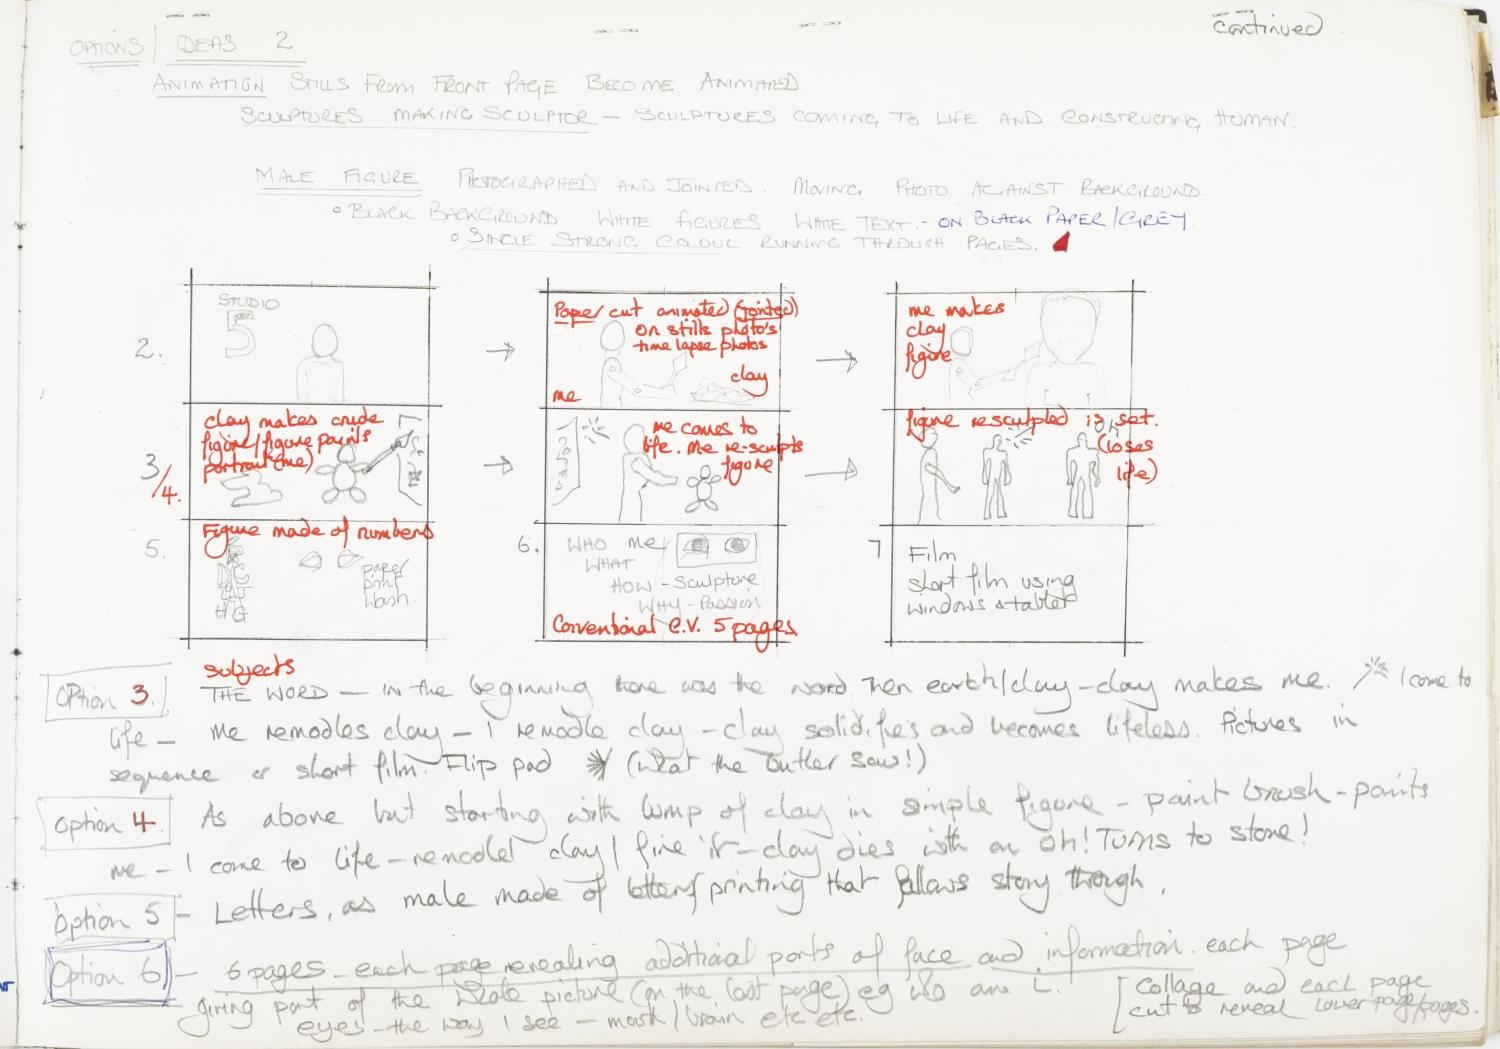 continued
OPTIONS / IDEAS 2
ANIMATION STILLS FROM FRONT PAGE BECOME ANIMATED
SCULPTURES MAKING SCULPTOR - SCULPTURES COMING TO LIFE AND CONSTRUCTING HUMAN.
MALE FIGURE PHOTOGRAPHED AND JOINTED. MOVING PHOTO AGAINST BACKGROUND.
BLACK BACKGROUND WHITE FIGURES WHITE TEXT. - ON BLACK PAPER/GREY
SINGLE STRONG COLOUR RUNNING THROUGH PAGES.
2.
STUDIO
5
Paper cut animated (jointed)
on stills photo's
time lapse photos
clay
me
me makes
clay
figure
3/4.
clay makes crude
figure/figure paints
portrait (me)
me comes to
life. Me re-sculpts
figure
figure resculpted is set.
Oh
(loses
life)
5.
Figure made of numbers
HG
paper
print
wash.
6.
WHO Me
WHAT
HOW - Sculpture
WHY - PASSION
Conventional C.V. 5 pages.
7
Film
short film using
windows & tablet
subjects
Option 3. THE WORD - in the beginning there was the word. Then earth/clay - clay makes me. I come to
life - me remodles clay - I remodle clay - clay solidifies and becomes lifeless. Pictures in
sequence or short film. Flip pad (What the Butler Saw!)
Option 4. As above but starting with lump of clay in simple figure - paint brush - paints
me - I come to life - remodel clay / fire it - clay dies with an Oh! Turns to stone!
Option 5 - Letters, as male made of letters/printing that follows story through.
Option 6 - 6 pages - each page revealing additional parts of face and information. each page
giving part of the whole picture (on the last page) eg who am I.
eyes - the way I see - mouth/brain etc etc.
Collage and each page
cut to reveal lower page/pages.